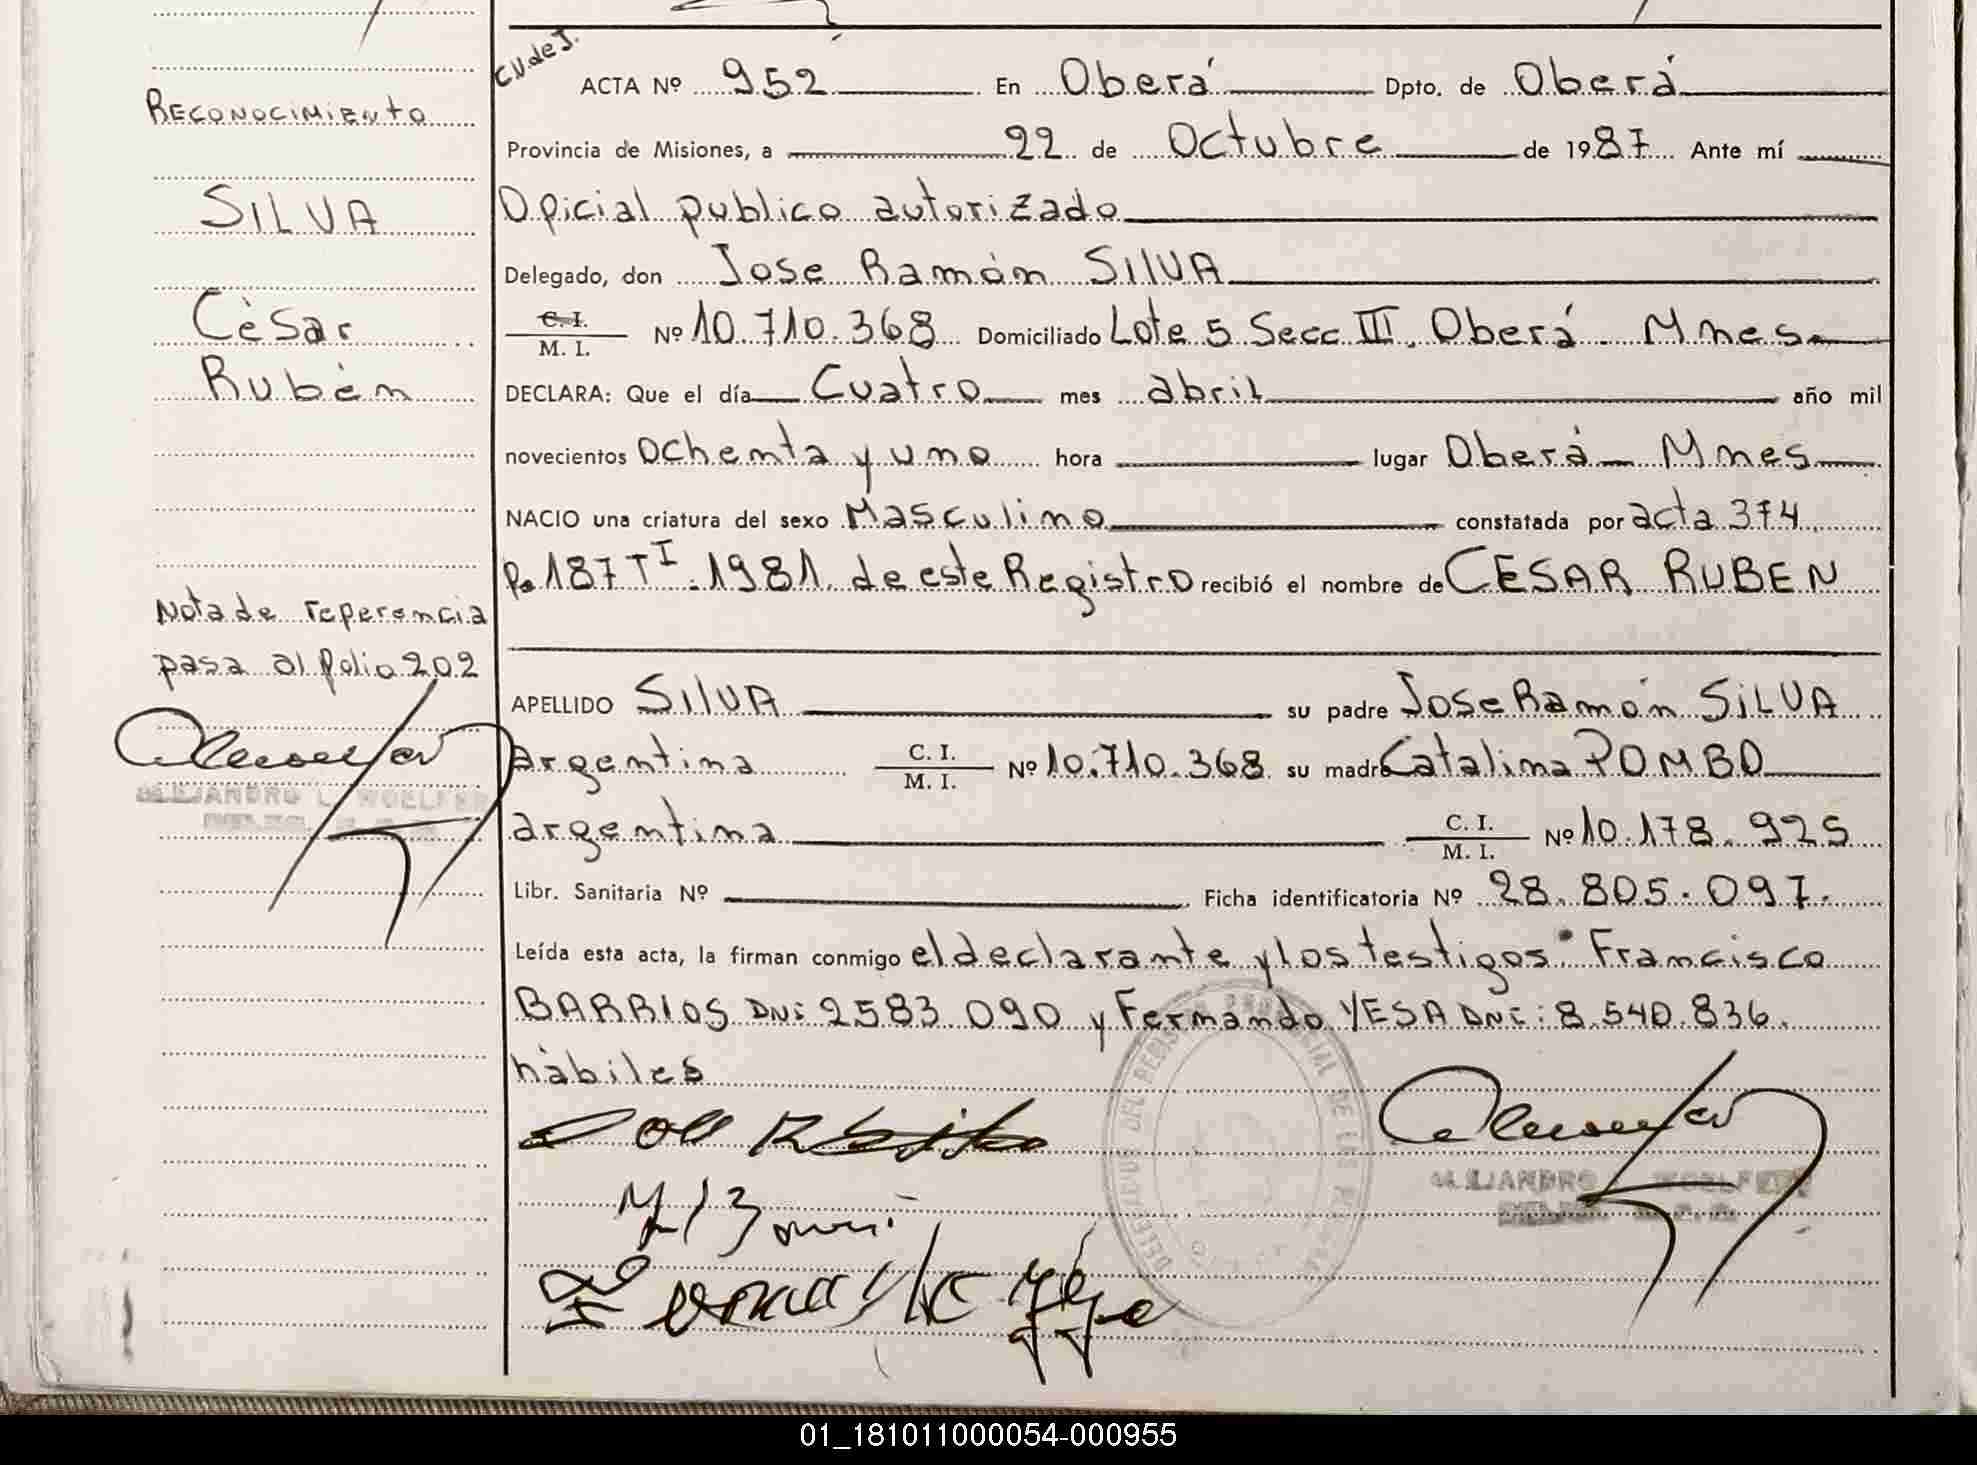 CV. de J.
ACTA Nº 952 En Oberá Dpto. de Oberá
Provincia de Misiones, a 22 de Octubre de 1987 Ante mí
Oficial publico autorizado
Delegado, don Jose Ramón SILVA
C. I. / M. I. Nº 10.710.368 Domiciliado Lote 5 Secc III. Oberá - Mnes
DECLARA: Que el día Cuatro mes abril año mil
novecientos Ochenta y uno hora lugar Oberá Mnes
NACIO una criatura del sexo Masculino constatada por acta 374
Fº 187 T I . 1981. de este Registro recibió el nombre de CÉSAR RUBEN
APELLIDO SILVA su padre Jose Ramón SILVA
argentina C. I. / M. I. Nº 10.710.368 su madre Catalina POMBO
argentina C. I. / M. I. Nº 10.178.925
Libr. Sanitaria Nº Ficha identificatoria Nº 28.805.097.
Leída esta acta, la firman conmigo el declarante y los testigos: Francisco
BARRIOS DNi: 2583.090 y Fernando YESA DNi: 8.540.836.
hábiles
RECONOCIMIENTO
SILVA
César
Rubén
Nota de referencia
pasa al folio 202
ALEJANDRO L. WOELFER
ALEJANDRO WOELFER
01_181011000054-000955